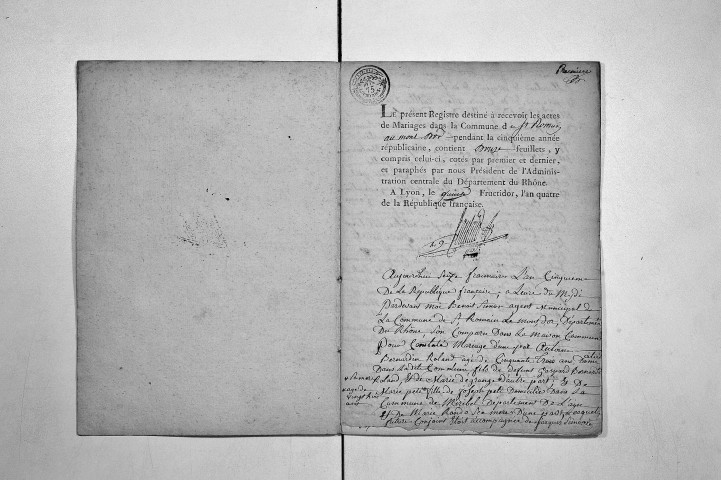 Premiere
LE présent Registre destiné à recevoir les actes
de Mariages dans la Commune de St Romain
au mont d'or pendant la cinquième année
républicaine, contient feuillets, y
compris celui-ci, cotés par premier et dernier,
et paraphés par nous Président de l'Adminis-
tration centrale du Département du Rhône.
A Lyon, le quinze Fructidor, l'an quatre
de la République française.
Aujourdhui seize frimaire L'an Cinquieme
De La Republique française, a Leure du Midi
Pardevant moi Benoit Simon agent Municipal de
La Commune de St Romain Le montdor, Departement
Du Rhône, Son Comparu Dans La Maison Commune
Pour Constaté Mariage d'une part
Bernardin Roland agé de Cinquante trois ans
Dans Ladite Commune fils de defunt Bernardin
Roland, & de Marie degrange d'autre part, & De
Marie petit fille de Joseph petit Domiciliés Dans La
agée de
vingt huit
ans
Commune de Miribel Departement De L'ain
& De Marie Sa mere D'une part, Lesquels
futurs Conjoints Etoit accompagnés de Jacques Simon